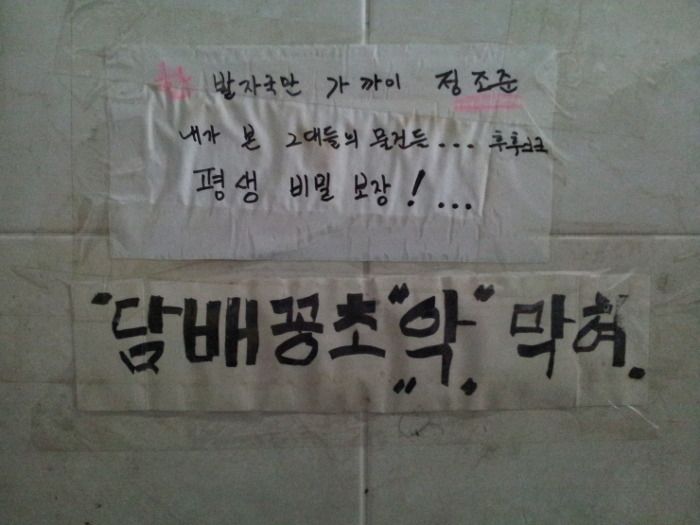 한 발자국만 가까이 정조준
내가 본 그대들의 물건든... 후후
평생 비밀 보장!...
"담배꽁초"악" 막혀.